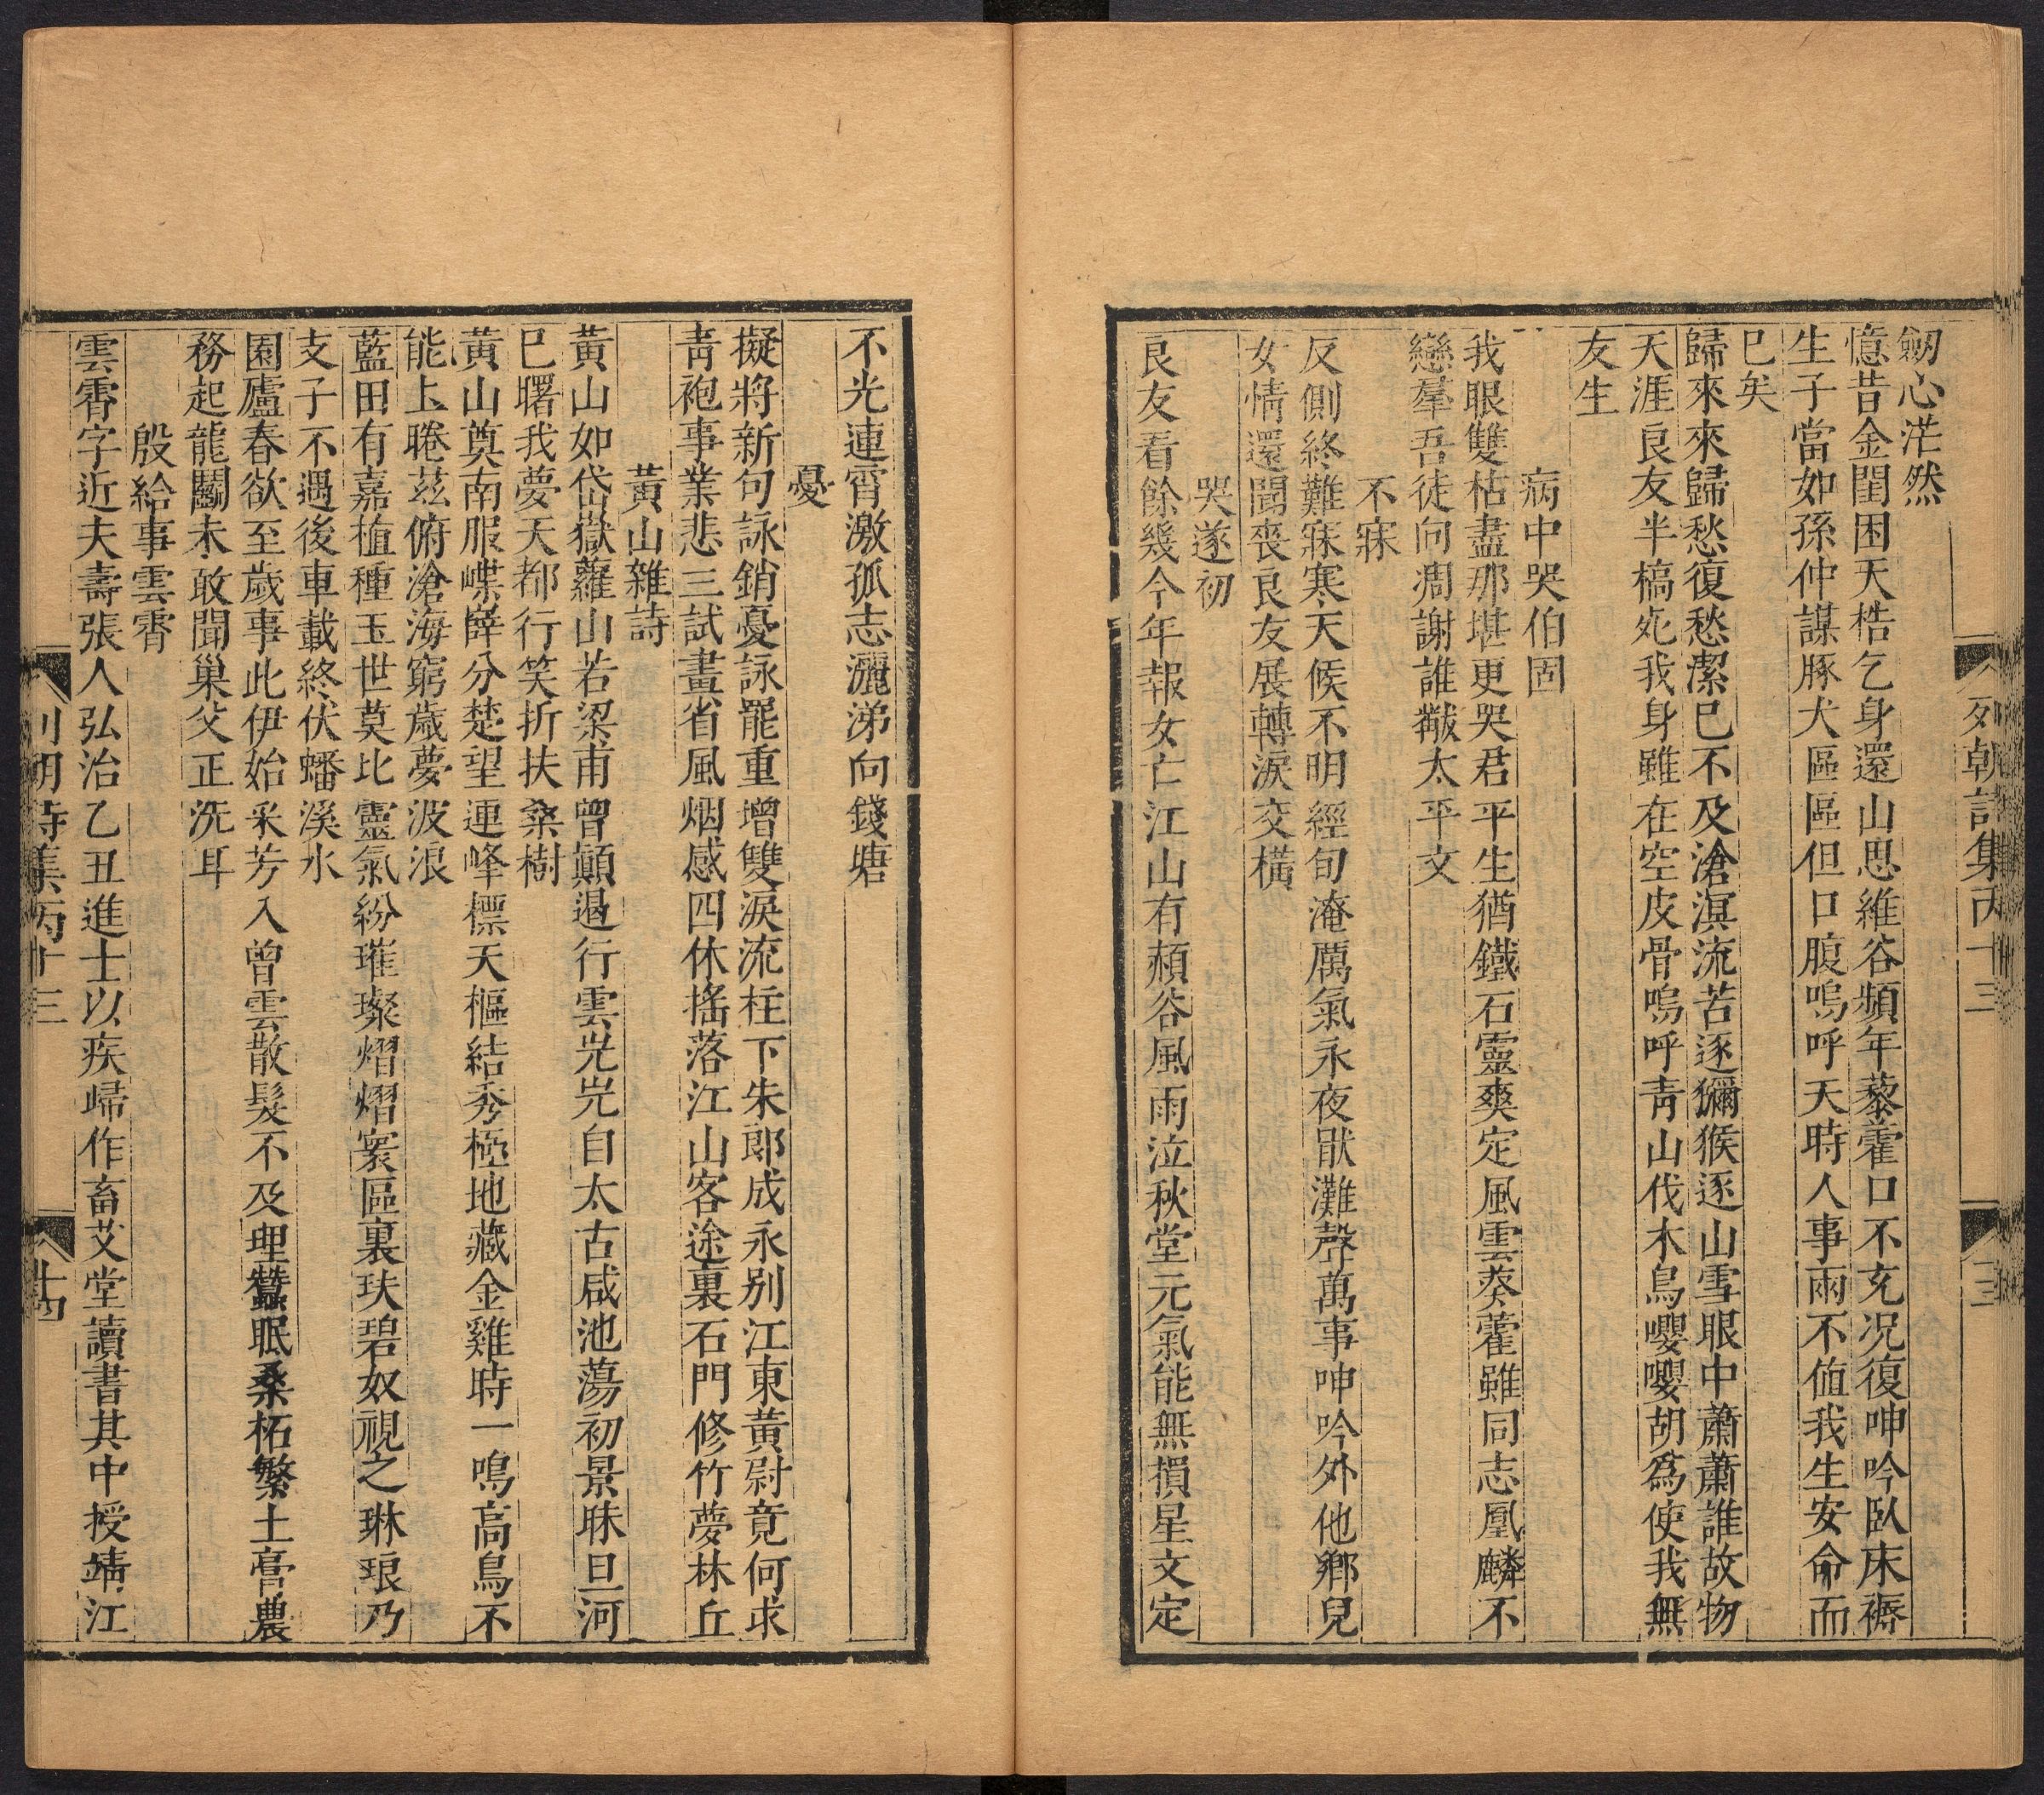 列朝詩集丙十三
十三
劒心茫然
憶昔金閨困天梏乞身還山思維谷頻年藜藿口不充况復呻吟臥床褥
生子當如孫仲謀豚犬區區但口腹嗚呼天時人事兩不值我生安命而
巳矣
歸來來歸愁復愁潔巳不及滄溟流苦逐獼猴逐山雪眼中蕭蕭誰故物
天涯良友半槁死我身雖在空皮骨嗚呼靑山伐木鳥嚶嚶胡為使我無
友生
病中哭伯固
我眼雙枯盡那堪更哭君平生猶鐵石靈爽定風雲葵藿雖同志鳳麟不
戀羣吾徒向凋謝誰黻太平文
不寐
反側終難寐寒天候不明經旬淹厲氣永夜猒灘聲萬事呻吟外他鄉兒
女情還聞喪良友展轉淚交橫
哭遂初
良友看餘幾今年報女亡江山有頽谷風雨泣秋堂元氣能無損星文定
不光連霄激孤志灑涕向錢塘
憂
擬將新句詠銷憂詠罷重增雙淚流柱下朱郎成永别江東黃尉竟何求
靑袍事業悲三試畫省風烟感四休搖落江山客途裏石門修竹夢林丘
黃山雜詩
黃山如岱嶽蘿山若梁甫曾顛遏行雲光光自太古咸池蕩初景昧旦河
巳曙我夢天都行笑折扶桑樹
黃山奠南服嵽嶭分楚望連峰標天樞結秀極地藏金雞時一鳴高鳥不
能上睠茲俯滄海窮歲夢波浪
藍田有嘉植種玉世莫比靈氣紛璀璨熠熠寰區裏玞碧奴視之琳琅乃
支子不遇後車載終伏蟠溪水
園廬春欲至歲事此伊始采芳入曾雲散髮不及理蠶眠桑柘繁土膏農
務起龍鬭未敢聞巢父正洗耳
殷給事雲霄
雲霄字近夫壽張人弘治乙丑進士以疾歸作畜艾堂讀書其中授靖江
列朝詩集丙十三
十四